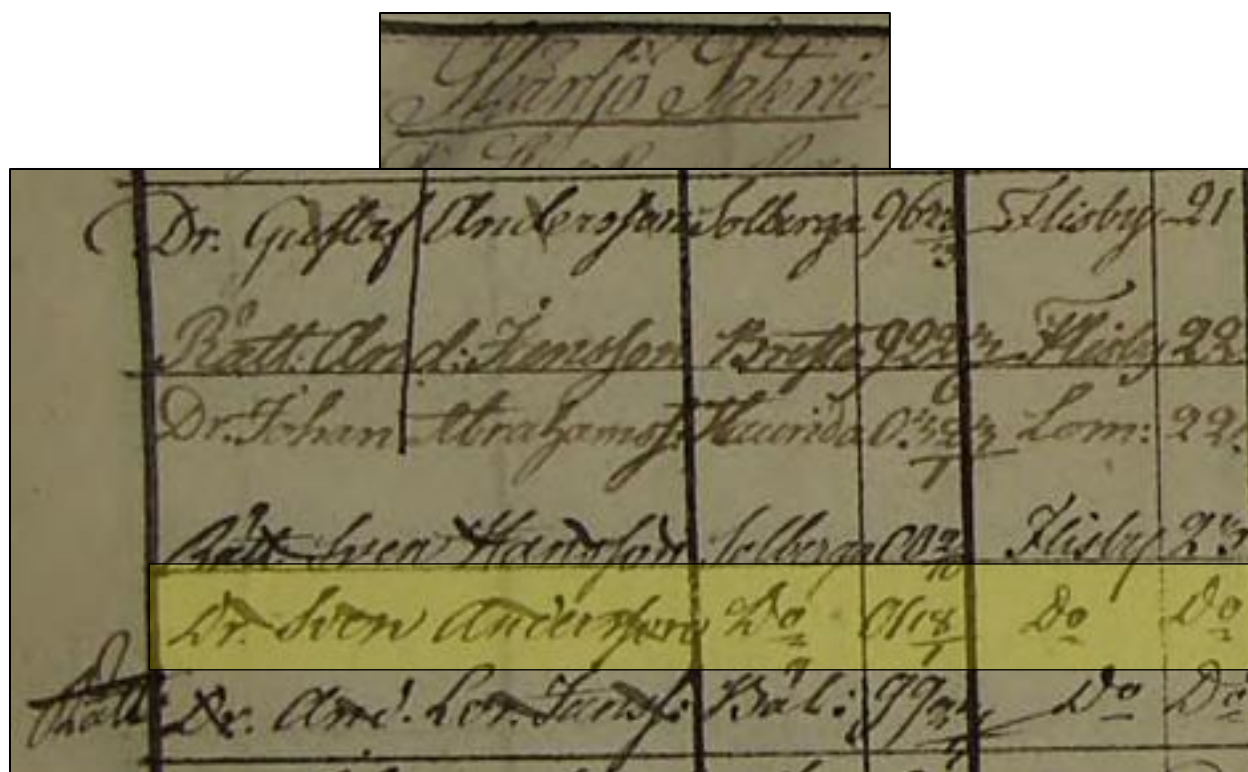 Skärsjö Säterie
Dr. Gustaf Andersson Solberga 96 22/3 Flisby 21
Rätt. And: Jönsson Bref 92 Flisby 22
Dr. Johan Abrahamss: Haurida 0. Lom: 22.
Rätt Sven Hansson Solberga 00 Flisby 23
Dr. Sven Andersson Do 01 18/1 Do Do
Rätt: Dr. And. Lor. Jansf: Bäl: 99 Do Do